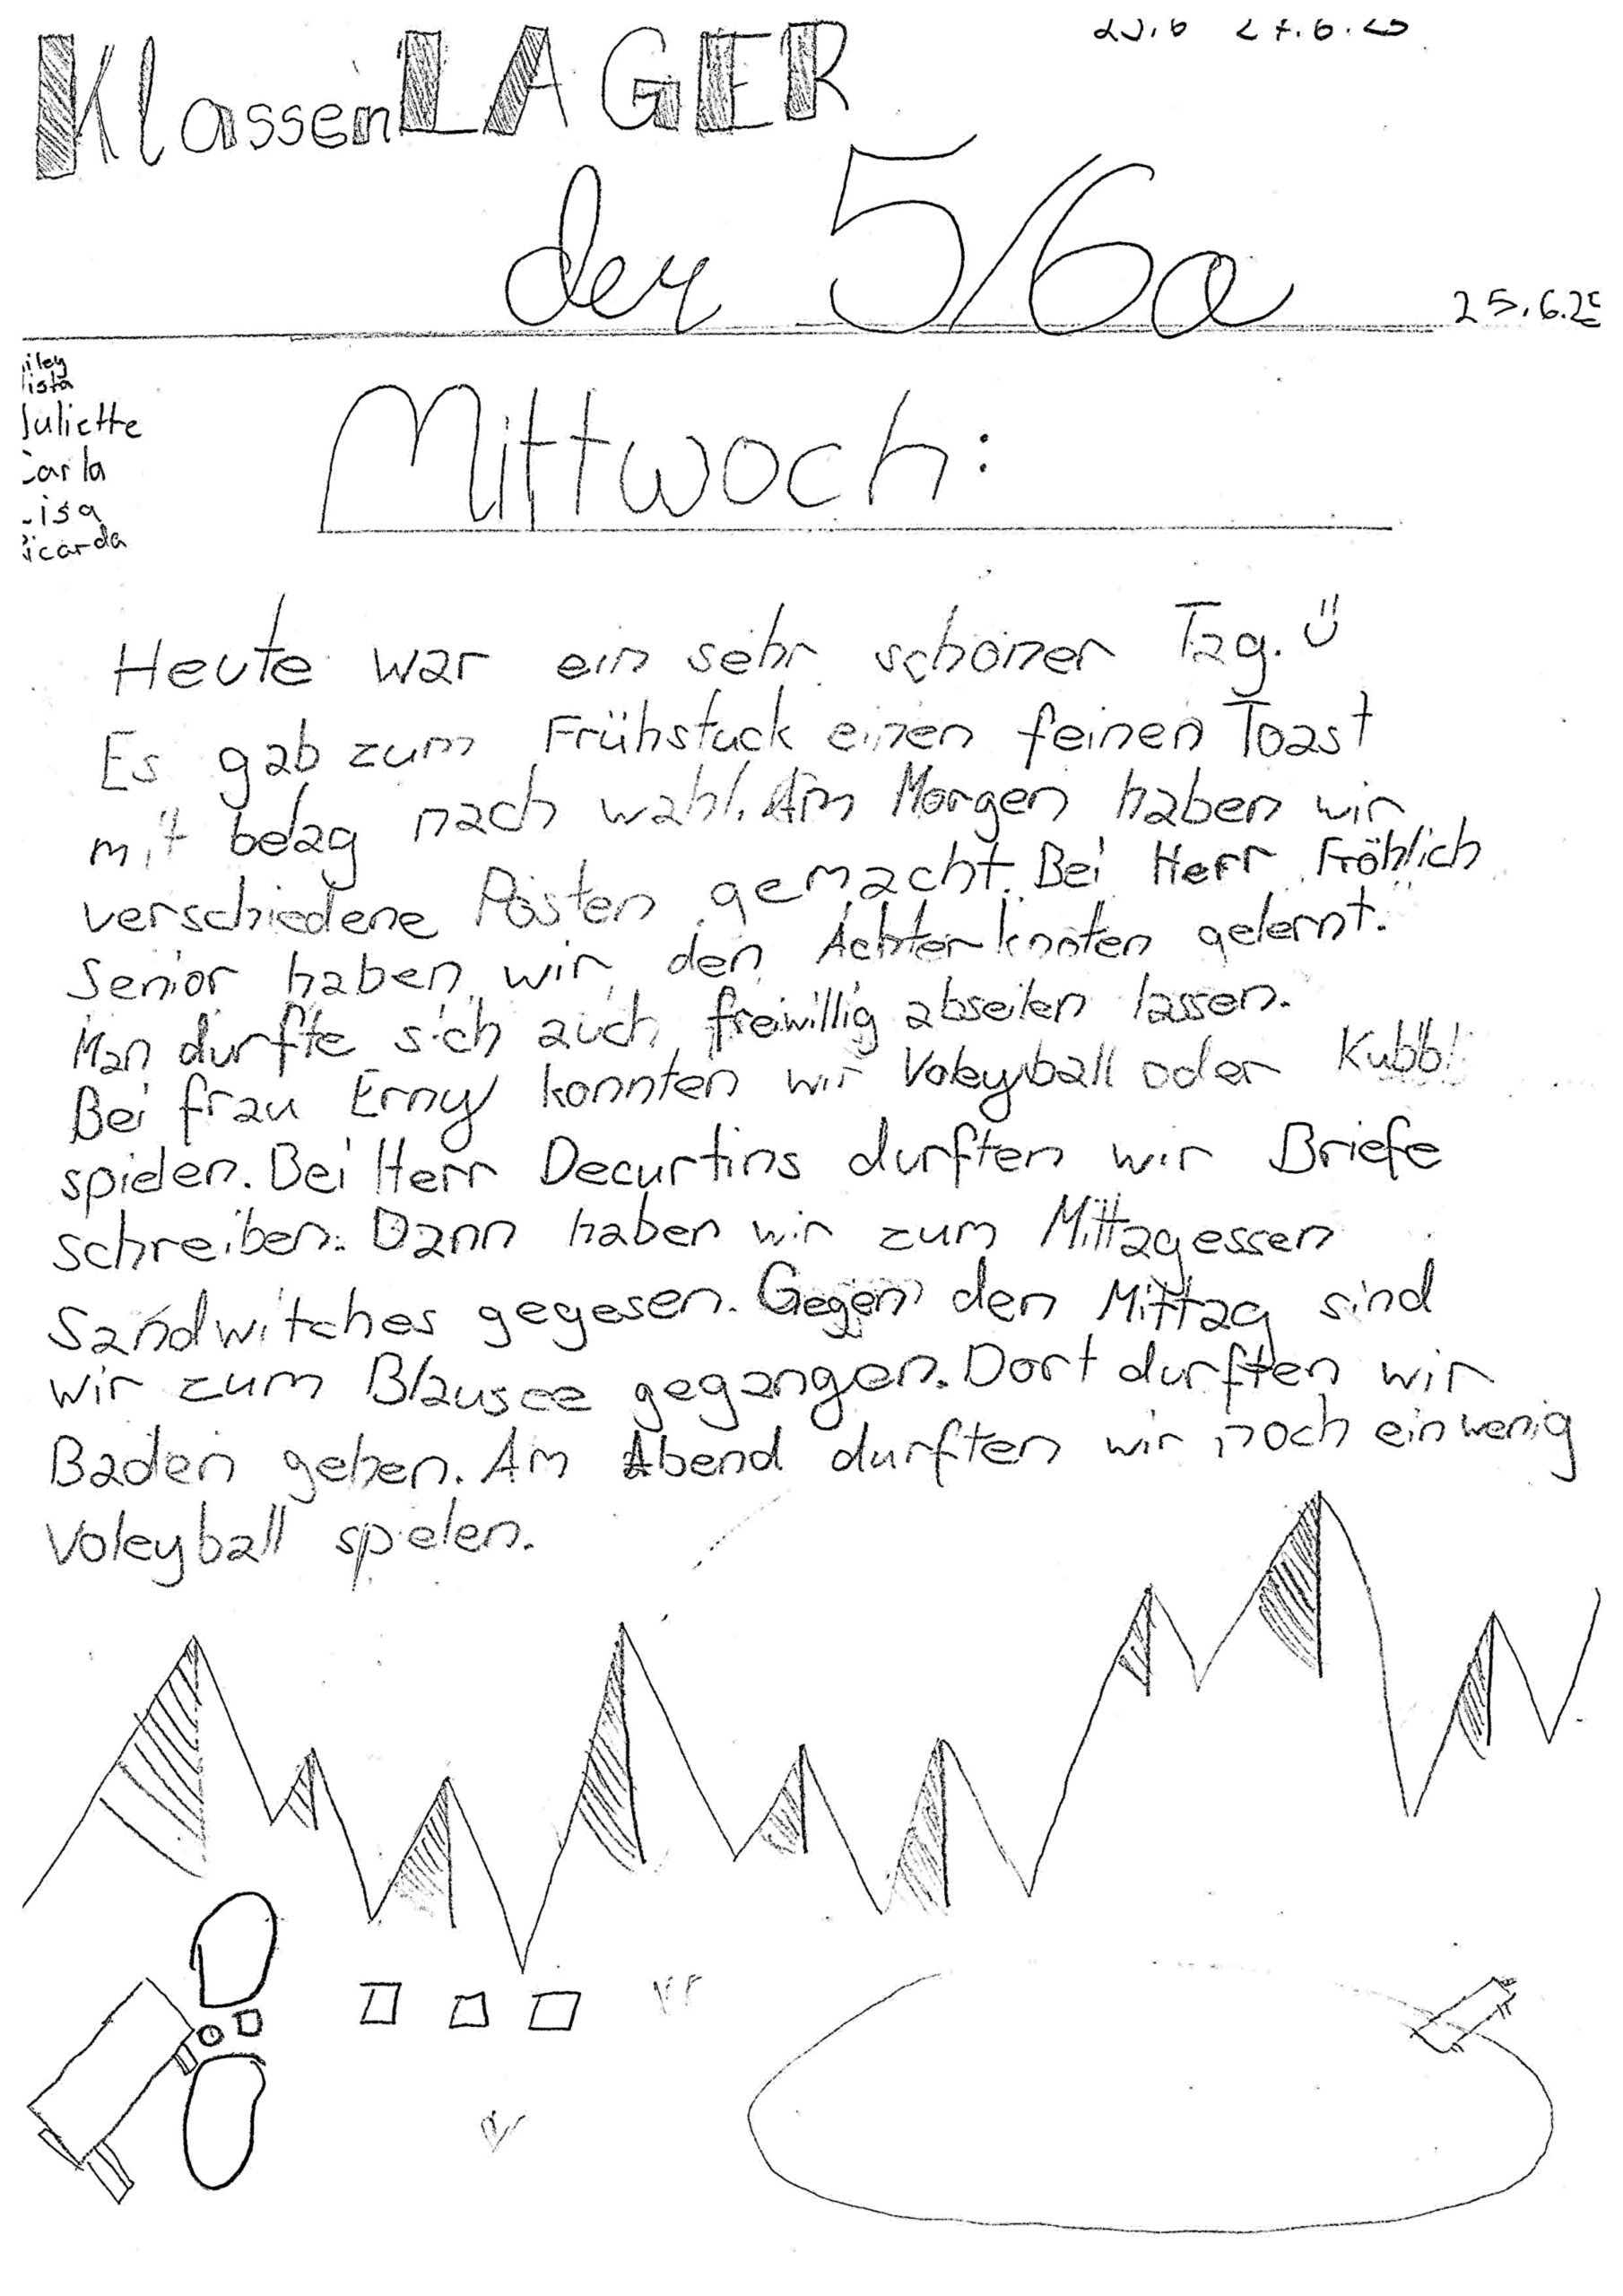 KlassenLAGER
der 5/6a
25.6.25
Juliette
Carla
Lisa
Ricarda
Mittwoch:
Heute war ein sehr schöner Tag. Ü
Es gab zum Frühstuck einen feinen Toast
mit belag nach wahl. Am Morgen haben wir
verschiedene Posten gemacht. Bei Herr Fröhlich
Senior haben wir den Achterknoten gelernt.
Man durfte sich auch freiwillig abseilen lassen.
Bei frau Erny konnten wir Voleyball oder Kubb
spielen. Bei Herr Decurtins durften wir Briefe
schreiben. Dann haben wir zum Mittagessen
Sandwitches gegesen. Gegen den Mittag sind
wir zum Blausee gegangen. Dort durften wir
Baden gehen. Am Abend durften wir noch ein wenig
Voleyball spielen.